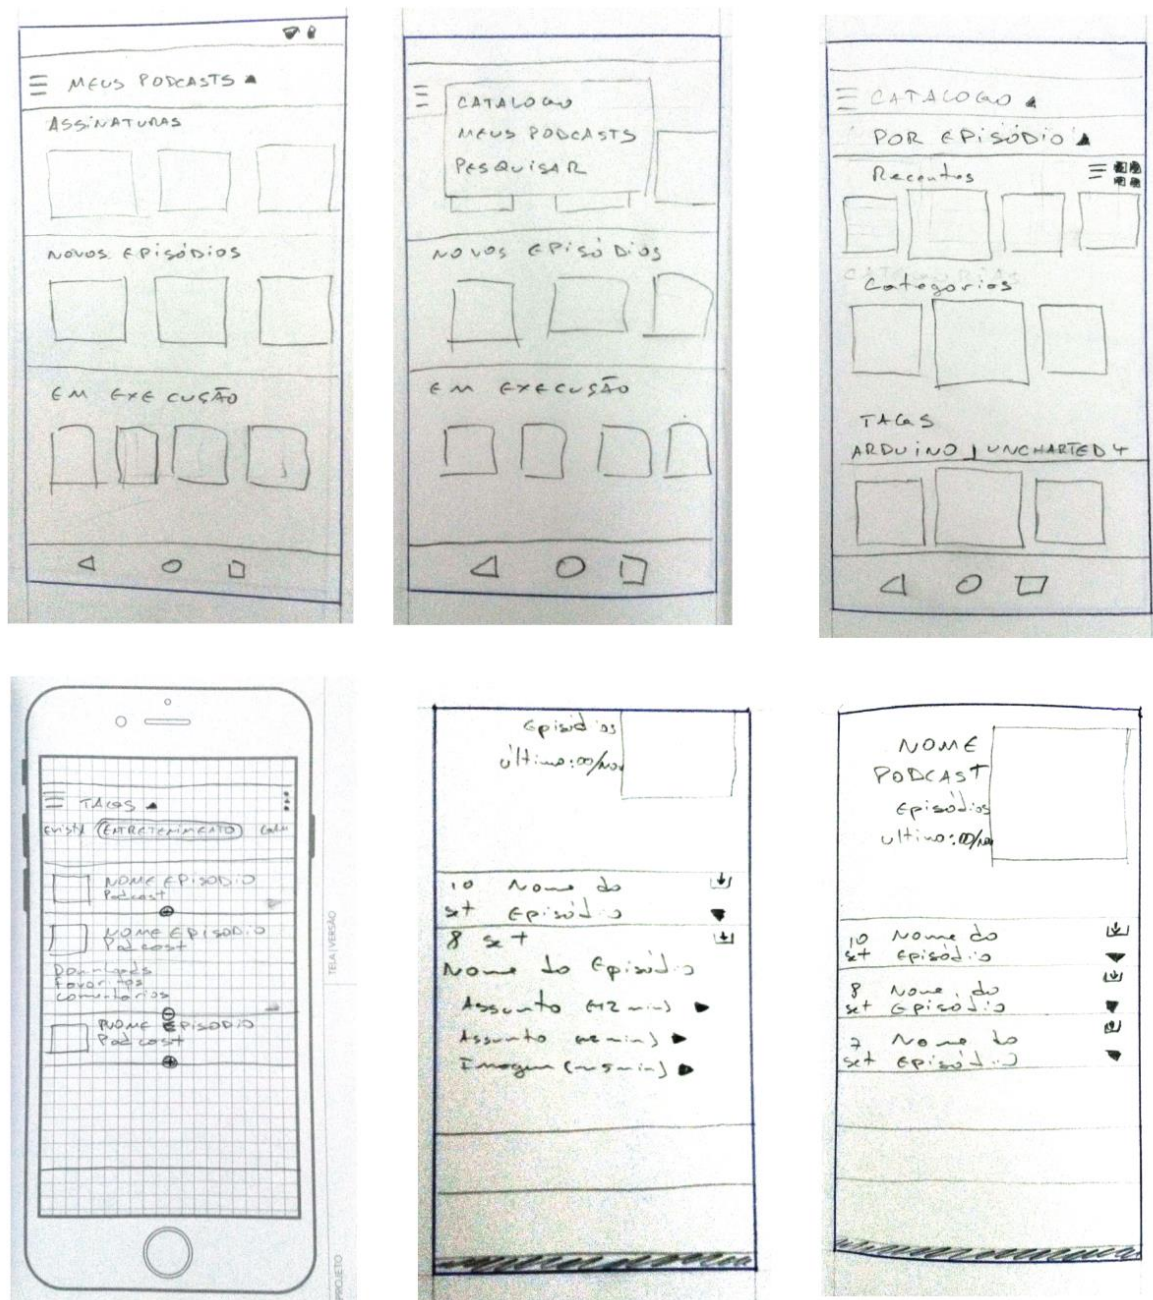 MEUS PODCASTS
ASSINATURAS
NOVOS EPISÓDIOS
EM EXECUSÃO
CATALOGO
MEUS PODCASTS
PESQUISAR
NOVOS EPISÓDIOS
EM EXECUSÃO
CATALOGO
POR EPISÓDIO
Recentes
CATEGORIAS
Categorias
TAGS
ARDUINO | UNCHARTED 4
TAGS
ENTRETENIMENTO
NOME EPISODIO
Podcast
NOME EPISODIO
Podcast
Downloads
Favoritos
Comentarios
NOME EPISODIO
Podcast
TELA | VERSÃO
PROJETO
Episódios
último: 00/nov
10 Nome do
set Episódio
8 set
Nome do Episódio
Assunto
Assunto
Imagem
NOME
PODCAST
Episódios
ultimo: 00/nov
10 Nome do
set Episódio
8 Nome do
set Episódio
7 Nome do
set Episódio